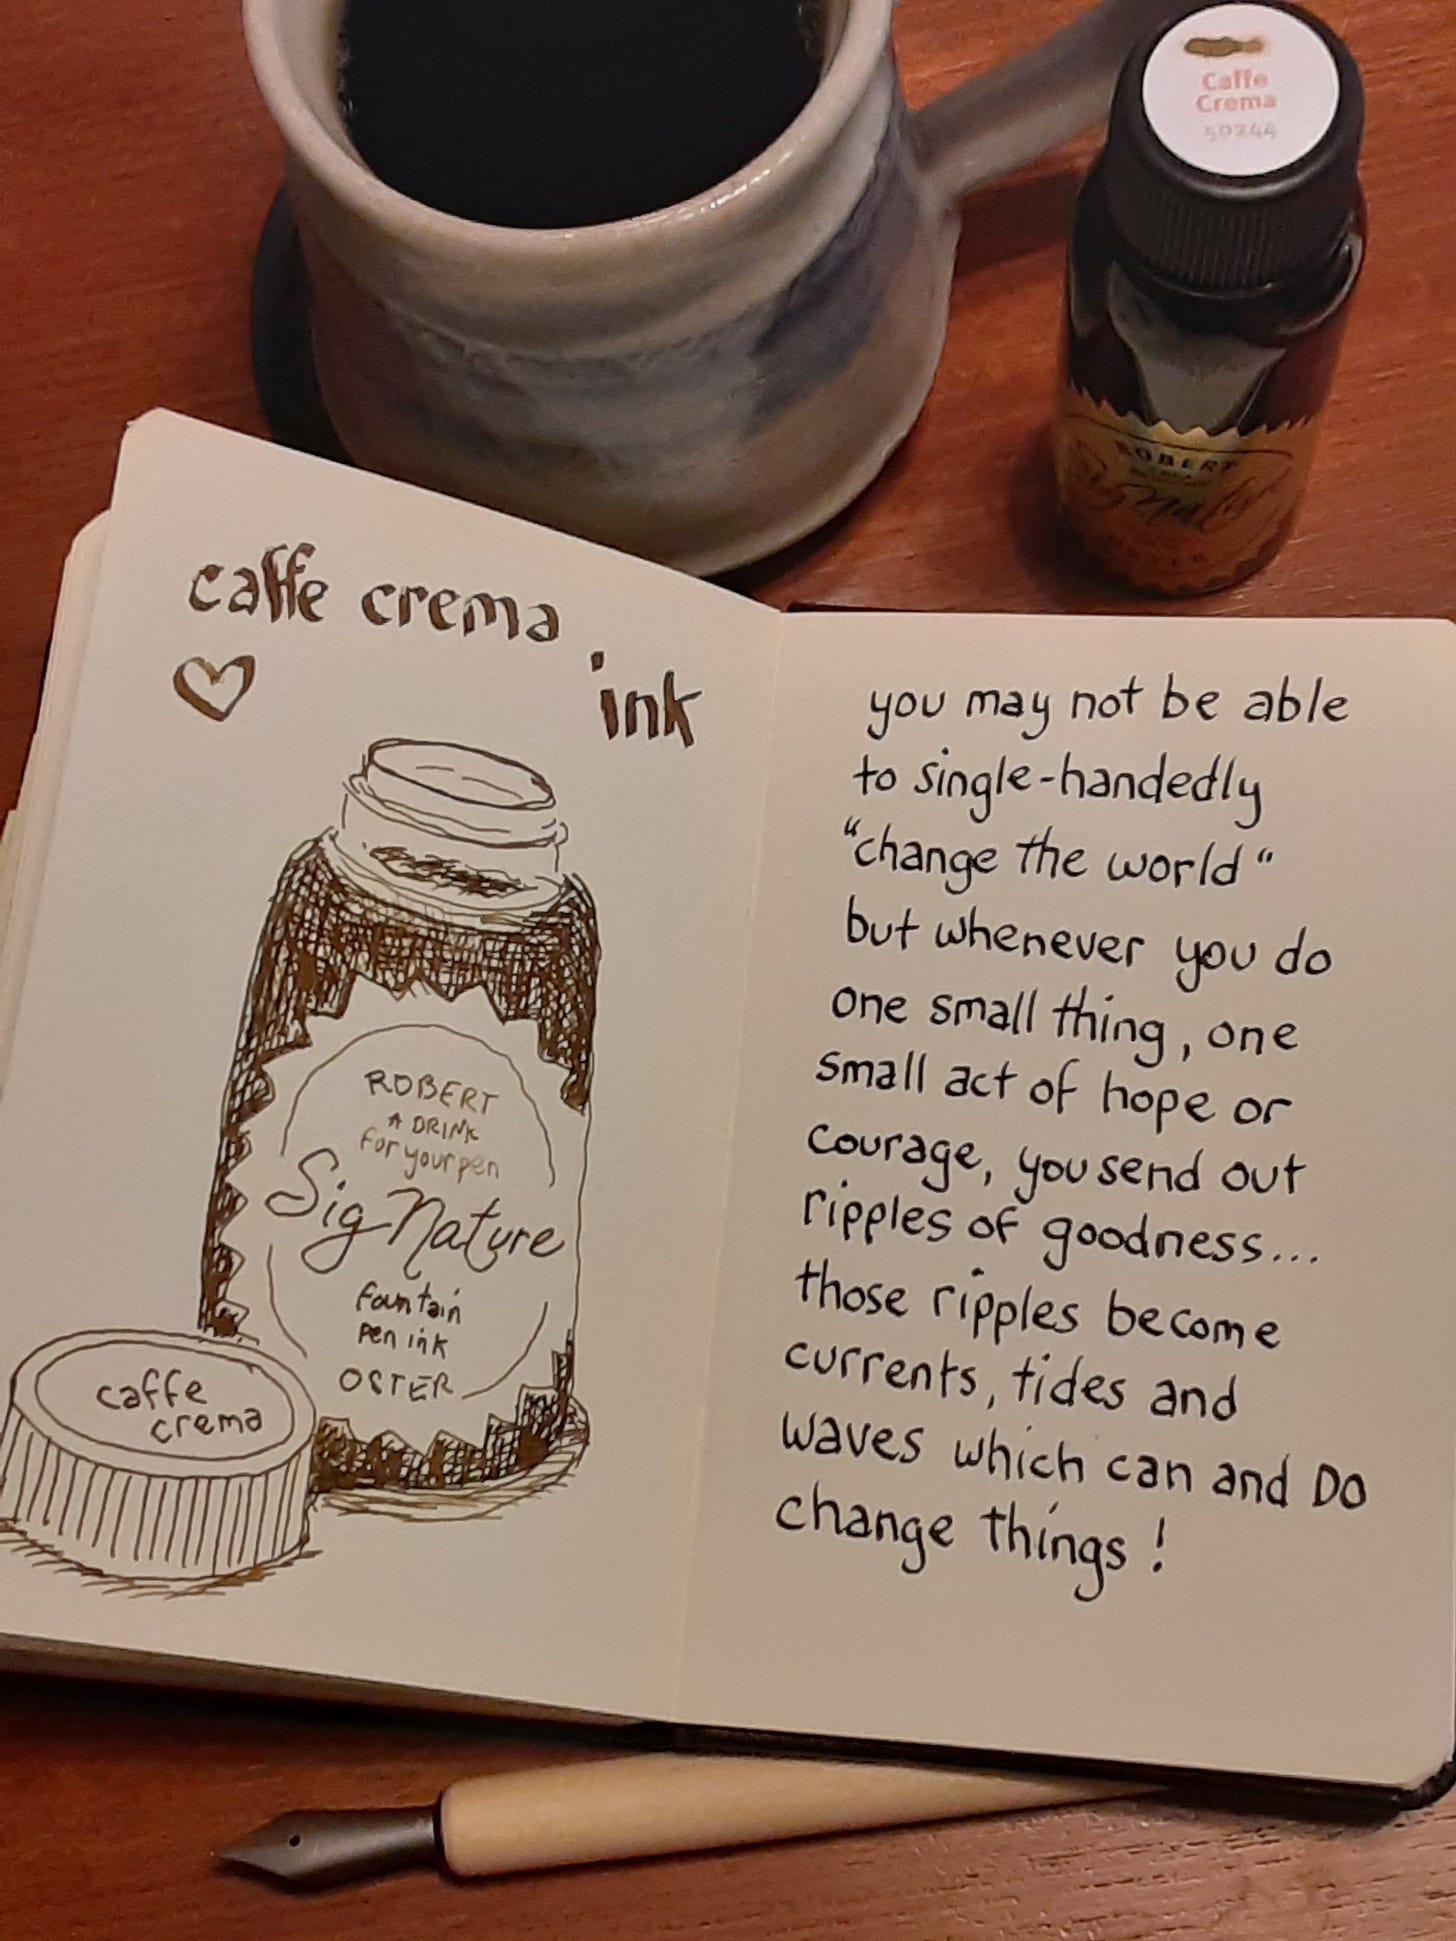 Caffe
Crema
50244
ROBERT
caffe crema
ink
ROBERT
A DRINK
for your pen
SigNature
fountain
pen ink
OSTER
caffe
crema
you may not be able
to single-handedly
"change the world"
but whenever you do
one small thing, one
small act of hope or
courage, you send out
ripples of goodness...
those ripples become
currents, tides and
waves which can and DO
change things!